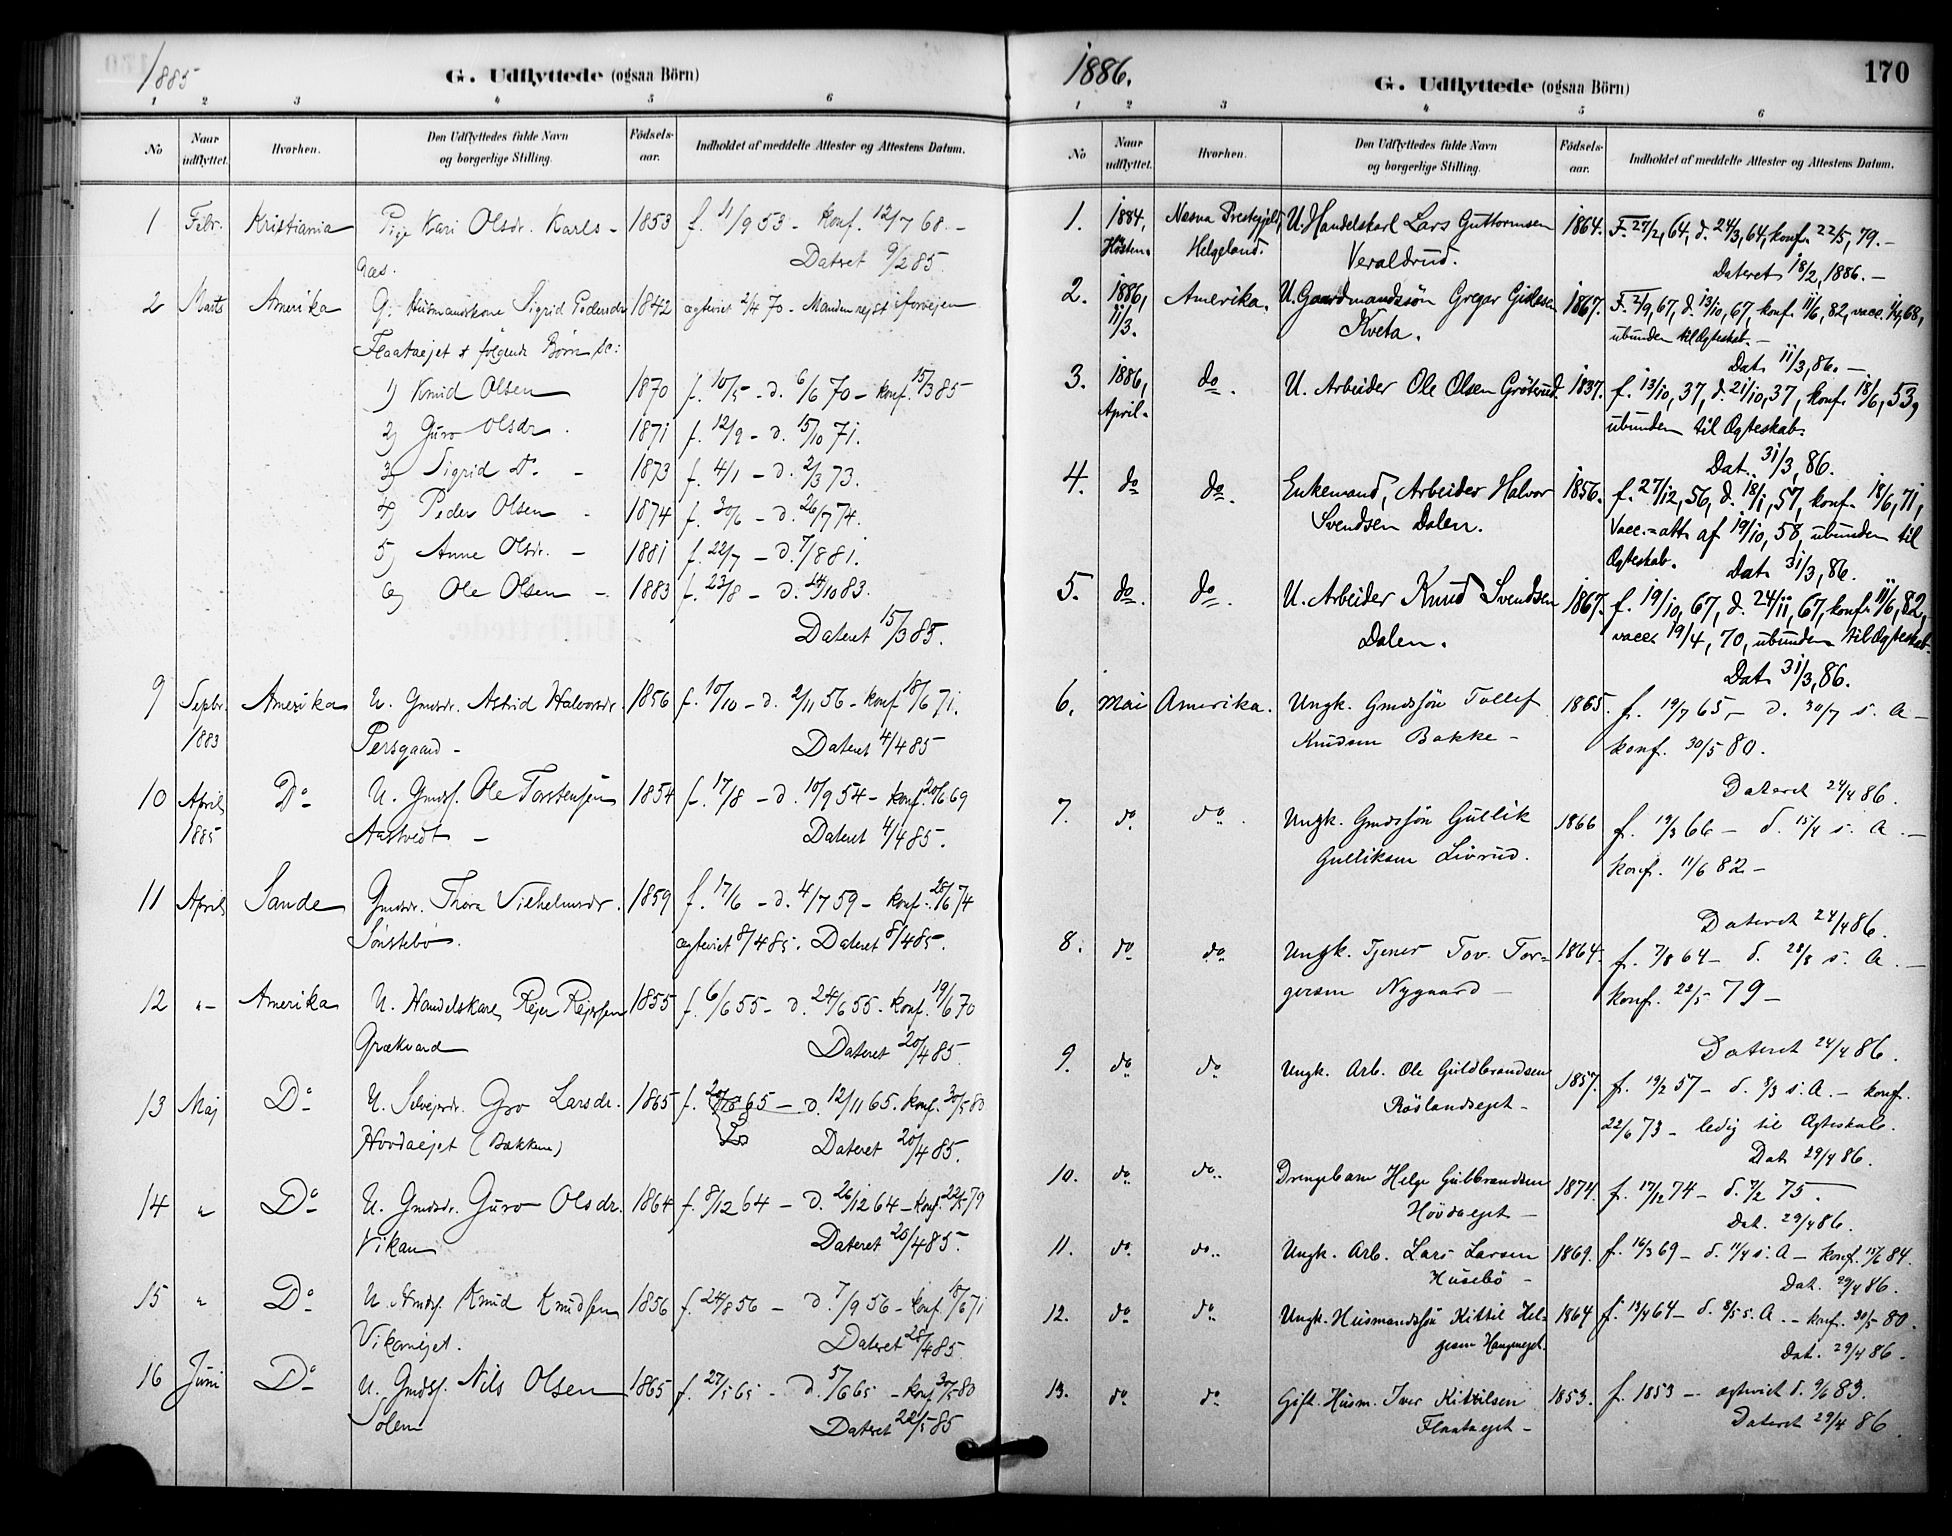 1885
G. Udflyttede (ogsaa Börn)
1 2 3 4 5 6
No
Naar udflyttet.
Hvorhen.
Den Udflyttedes fulde Navn og borgerlige Stilling.
Födsels-aar.
Indholdet af meddelte Attester og Attestens Datum.
1 Febr. Kristiania Pige Kari Olsdr. Karls- 1853 f. 11/9 53 - konf. 12/7 68. -
Dateret 9/2 85.
2 Marts Amerika G. Husmandskone Sigrid Pedersdr 1842 ægteviet 2/4 70 - Manden rejst iforvejen
Flaataejet & følgende Børn sc:
1) Knud Olsen 1870 f. 10/5 - d. 6/6 70 - konf. 15/3 85
2) Guro Olsdr. 1871 f. 12/9 - d. 15/10 71.
3) Sigrid Do - 1873 f. 4/1 - d. 2/3 73.
4) Peder Olsen - 1874 f. 30/6 - d. 26/7 74.
5) Anne Olsdr. - 1881 f. 22/7 - d. 7/8 81.
6) Ole Olsen - 1883 f. 23/8 - d. 14/10 83.
Dateret 15/3 85.
9 Septbr. Amerika U. Gmdsdr. Astrid Halvorsdr. 1856 f. 10/10 - d. 2/11 56 - konf 18/6 71.
1883 Persgaard - Dateret 4/4 85
10 April Do U. Gmdsf. Ole Torstensen 1854 f. 17/8 - d. 10/9 54 - konf. 20/6 69
1885 Aastvedt - Dateret 4/4 85.
11 April Sande Gmdsdr. Thora Vilhelmsdr. 1859 f. 17/6 - d. 4/7 59 - konf. 28/6 74
Sönstebö. ægteviet 8/4 85. Dateret 8/4 85.
12 "- Amerika U. Handelskarl Rejer Rejersen 1855 f. 6/6 55 - d. 24/6 55 - konf. 19/6 70
Grækvard Dateret 20/4 85.
13 Maj Do U. Selvejerdr. Gro Larsdr. 1865 f. 65 - d. 12/11 65. konf. 30/5 80
Hovdaejet (Bakken) Dateret 20/4 85.
14 " Do U. Gmdsdr. Guro Olsdr. 1864 f. 8/12 64 - d. 26/12 64 - konf. 22/5 79
Vikan Dateret 20/4 85.
15 " Do U. Knud Knudsen 1856 f. 24/8 56 - d. 7/9 56 - konf. 18/6 71
Vikanejet. Dateret 28/4 85.
16 Juni Do U. Gmdsf. Nils Olsen 1865 f. 27/5 65 - d. 5/6 65 - konf. 30/5 80
Solem Dateret 22/5 85
1886.
G. Udflyttede (ogsaa Börn)
170
1 2 3 4 5 6
No
Naar udflyttet.
Hvorhen.
Den Udflyttedes fulde Navn og borgerlige Stilling.
Födsels-aar.
Indholdet af meddelte Attester og Attestens Datum.
1. 1884, Næsna Prestegjeld, U. Handelskarl Lars Guttormsen 1864. F. 27/2, 64, d. 24/3, 64, konf. 22/5, 79. -
Hösten. Helgeland. Veraldrud. Dateret 18/2, 1886. -
2. 1886, Amerika. U. Gaardmandssön Gregar Gislesen 1867. F. 2/9, 67, d. 13/10, 67, konf. 11/6, 82, vacc. 1/4, 68,
11/3. Kveta. ubunden til Ægteskab. -
Dat. 11/3, 86. -
3. 1886, do. U. Arbeider Ole Olsen Gröterud. 1837. f. 13/10, 37, d. 21/10, 37, konf. 18/6, 53,
April. ubunden til Ægteskab.
Dat. 31/3, 86.
4. do do. Enkemand, Arbeider Halvor 1856. f. 27/12, 56, d. 18/1, 57, konf. 18/6, 71,
Svendsen Dalen. Vacc.-att. af 19/10, 58, ubunden til
Ægteskab. Dat. 31/3, 86.
5. do. do. U. Arbeider Knud Svendsen 1867. f. 19/10, 67, d. 24/11, 67, konf. 11/6, 82,
Dalen. vacc. 19/4, 70, ubunden til Ægteskab.
Dat. 31/3, 86.
6. Mai Amerika. Ungk. Gmdssön Tollef 1865. f. 19/7 65, - d. 30/7 s. A -
Knudsen Bakke - konf. 30/5 80.
Dateret 24/4 86.
7. do. do. Ungk. Gmdssön Gullik 1866 f. 19/3 66 - d. 15/4 s. A. -
Gulliksen Livrud. konf. 11/6 82 -
Dateret 24/4 86.
8. do do Ungk. Tjener Tov. Tor- 1864. f. 7/8 64 - d. 28/8 s. A. -
gersen Nygaard - konf. 22/5 79 -
Dateret 24/4 86.
9. do do Ungk. Arb. Ole Guldbrandsen 1857. f. 19/2 57 - d. 8/3 s. A. - konf.
Röslandseget - 22/6 73 - ledig til Ægteskab.
Dat. 29/4 86.
10. do. do. Drengebarn Helge Gulbrandsen 1874. f. 17/12 74 - d. 7/2 75.
Hövdaeget - Dat. 29/4 86.
11. do. do. Ungk. Arb. Lars Larsen 1869. f. 16/3 69 - d. 11/4 s. A - konf. 15/6 84.
Husebö - Dat. 29/4 86.
12. do do Ungk. Husmandssön Kittil Hel- 1864 f. 13/4 64 - d. 8/5 s. A. - konf. 30/5 80.
gesen Dat. 29/4 86.
13. do do Gift. Husm. Iver Kittilsen 1853. f. 1853 - ægteviet d. 9/6 83.
Flaataeget - Dateret 29/4 86